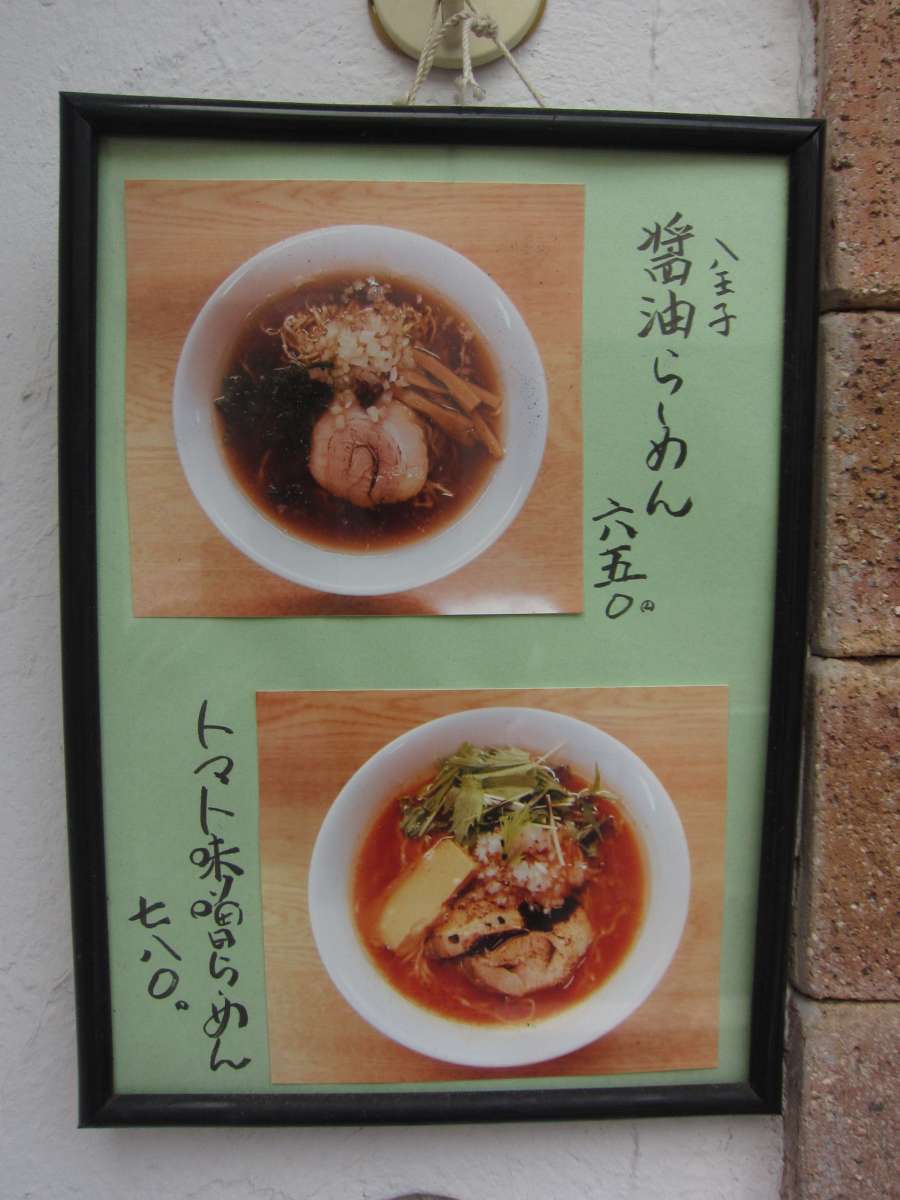 八王子
醤油らーめん
六五〇円
トマト味噌らーめん
七八〇円